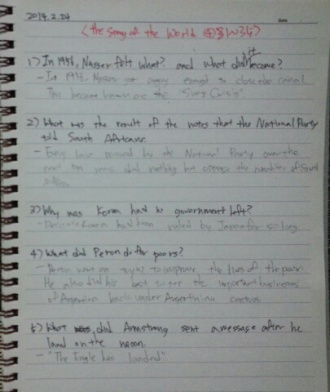 2014. 2. 24
Date
<the Story of the World
1) In 1956, Nasser felt what? and what did it become?
- In 1956, Nasser got angry enough to close the canal.
This became known as the "Suez Crisis".
2) What was the result of the votes that the National Party
told South Africans
- Every law passed by the National Party over the
next ten years did nothing but
3) Why was Korea had no government left?
- Because Korea had been ruled by Japan for so long.
4) What did Peron do for poors?
- Peron was on to improve the lives of the poor.
He also did his best to the important businesses
of Argentina back under Argentinian control.
5) What did Armstrong sent a message after he
land on the moon.
- "The Eagle has landed"